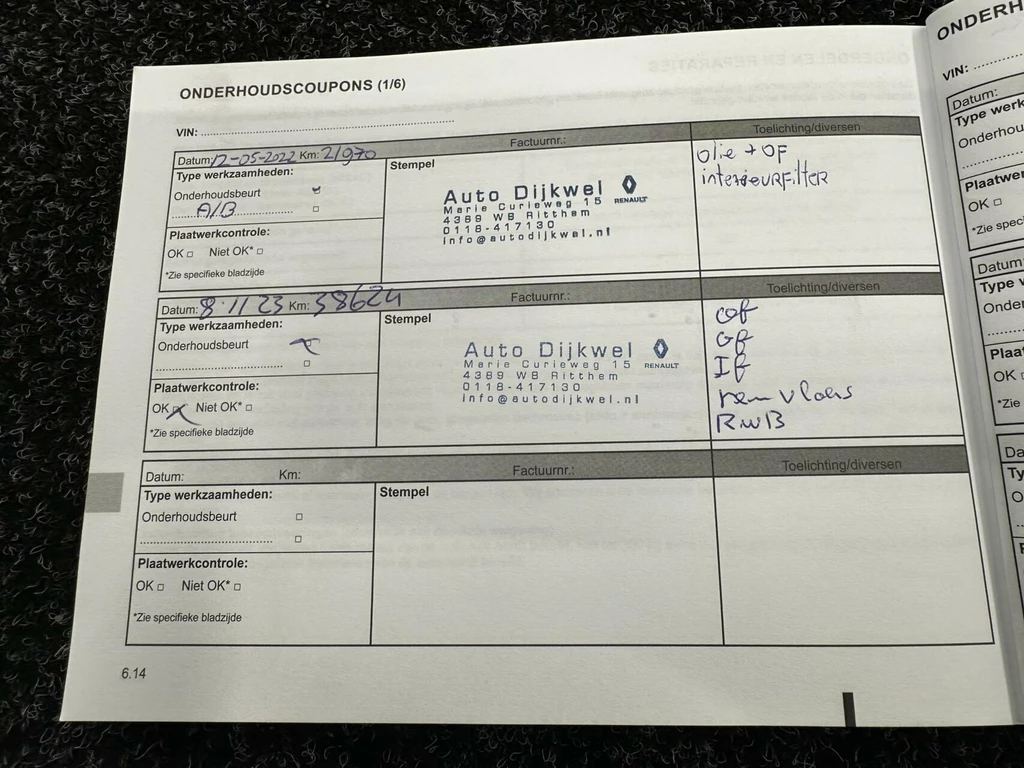 ONDERHOUDSCOUPONS (1/6)
VIN:
Datum: 12-05-2022 Km: 21970
Factuurnr.:
Toelichting/diversen
Type werkzaamheden:
Onderhoudsbeurt
A/B
Plaatwerkcontrole:
OK Niet OK*
*Zie specifieke bladzijde
Stempel
Auto Dijkwel
RENAULT
Marie Curieweg 15
4389 WB Ritthem
0118-417130
info@autodijkwel.nl
olie + OF
interieurfilter
Datum: 8-11 23 Km: 38624
Factuurnr.:
Toelichting/diversen
Type werkzaamheden:
Onderhoudsbeurt
Plaatwerkcontrole:
OK Niet OK*
*Zie specifieke bladzijde
Stempel
Auto Dijkwel
RENAULT
Marie Curieweg 15
4389 WB Ritthem
0118-417130
info@autodijkwel.nl
IF
rem vloeis
RWB
Datum: Km:
Factuurnr.:
Toelichting/diversen
Type werkzaamheden:
Onderhoudsbeurt
Plaatwerkcontrole:
OK Niet OK*
*Zie specifieke bladzijde
Stempel
6.14
ONDERH
VIN:
Datum:
Type werk
Onderhou
Plaatwer
OK
*Zie spec
Datum:
Type
Onder
Plaat
OK
*Zie